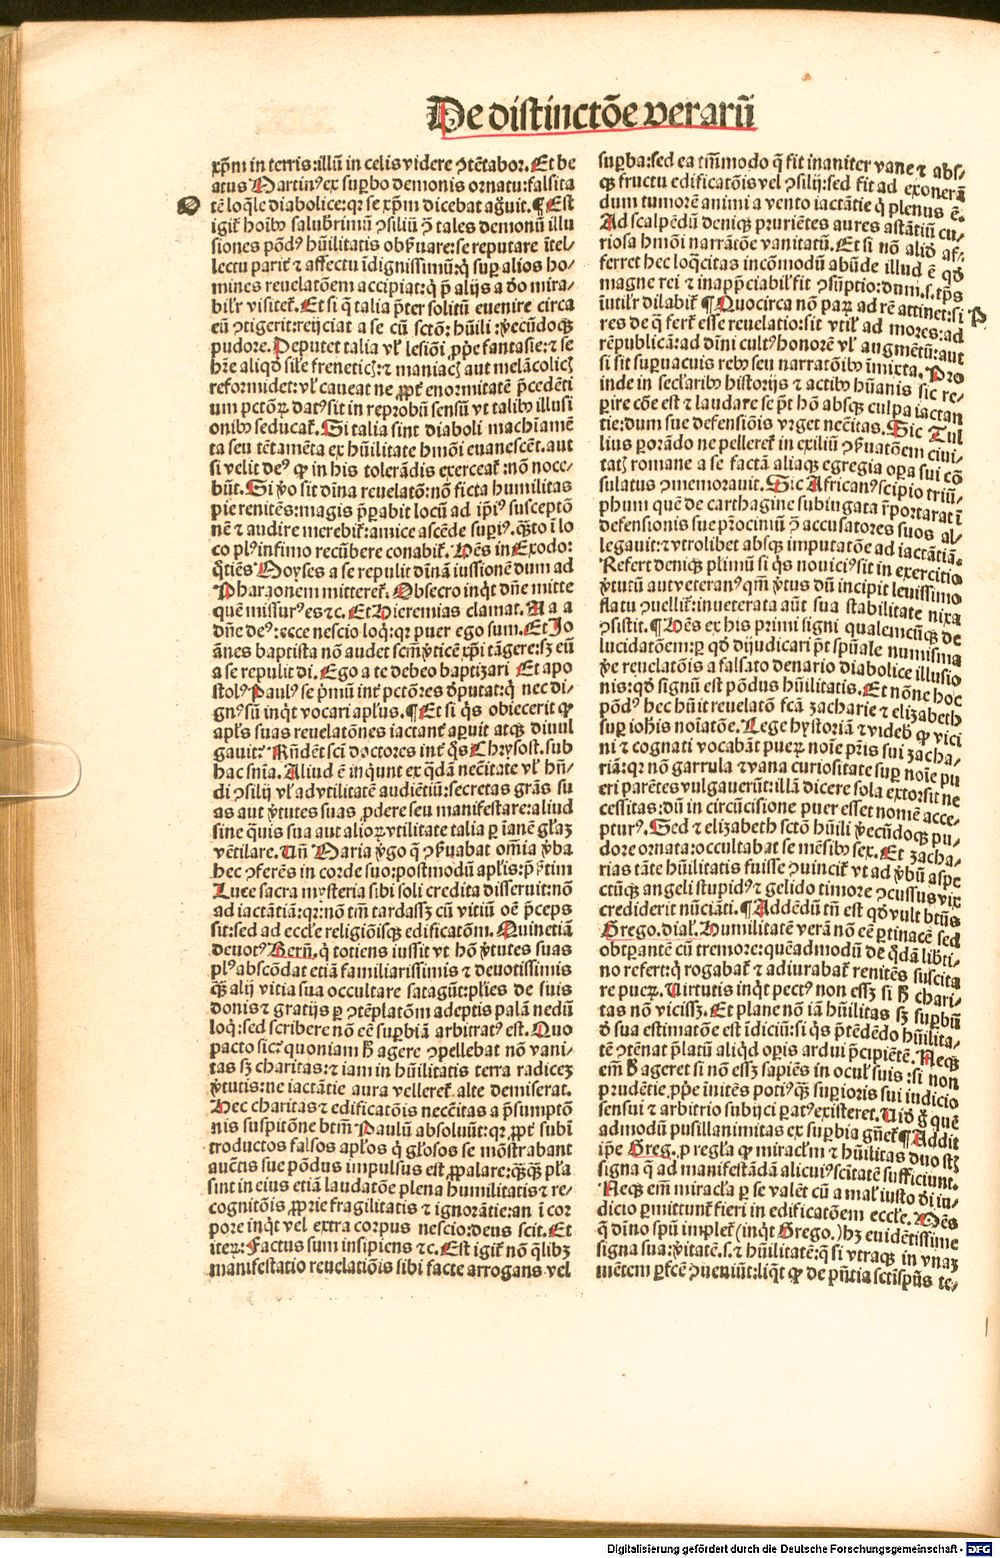 De distinctõe verarũ
xp̃m in terris:illũ in celis videre ↄtẽtabor. Et be
atus Martinꝰ ex suꝑbo demonis ornatu:falsita
tẽ loq̃le diabolice:qr se xp̃m dicebat agͥuit. ¶ Est
igiť hoĩbꝰ salubrimũ ↄsiliũ ↄ̃ tales demonũ illu
siones põdꝰ hũilitatis obẜuare:se reputare ĩtel⸗
lectu pariť ⁊ affectu ĩdignissimũ:q̇ suꝑ alios ho⸗
mines reuelatõem accipiat:q̇ p̃ alijs a deo mira⸗
bilr̃ visiteť. Et si q̃ talia p̃ter solitũ euenire circa
eũ ↄtigerit:reijciat a se cũ sctõ: hũili :ṽecũdoqꝫ
pudore. Deputet talia vl̃ lesiõi ꝓp̃e fantasie:⁊ se
hr̃e aliqd̾ sil̃e freneticꝭ:⁊ maniacꝭ aut melãcolicꝭ
reformidet:vl̃ caueat ne ꝓpt̃ enormitatẽ p̃cedẽti
um pctõꝝ datꝰ sit in reprobũ sensũ vt talibꝰ illusi
onibꝰ seducať. Si talia sint diaboli machĩamẽ
ta seu tẽtamẽta ex hũilitate hmõi euanescẽt. aut
si velit deꝰ ꝙ in his tolerãdis exerceať :nõ noce⸗
bũt. Si ṽo sit dĩna reuelatõ:nõ ficta humilitas
pie renitẽs:magis p̃ꝑabit locũ ad ip̃iꝰ susceptõ
nẽ ⁊ audire merebiť:amice ascẽde suꝑiꝰ. q̃sto ĩ lo
co plꝰ infimo recũbere conabiť. Hẽs in Exodo:
q̃tiẽs Moyses a se repulit dĩnã iussionẽ dum ad
Pharaonem mittereť. Obsecro inq̇t dñe mitte
quẽ missurꝰ es ⁊c. Et Hieremias clamat. A a a
dñe deꝰ: ecce nescio loq̇:qr puer ego sum. Et Jo
ãnes baptista nõ audet scm̃ ṽticẽ xp̃i tãgere:sꝫ eũ
a se repulit di. Ego a te debeo baptizari Et apo
stolꝰ Paulꝰ se p̃mũ inť pctõres d̾putat:q̇ nec di⸗
gnꝰ sũ inq̇t vocari apl̃us. ¶ Et si q̇s obiecerit ꝙ
apl̃s suas reuelatõnes iactanť aꝑuit atqꝫ diuul
gauit? Rñdẽt scĩ doctores inť q̇s Chrysost. sub
hac sñia. Aliud ẽ inquunt ex q̃dã necẽitate vl̃ hñ⸗
di ↄsilij vl̃ ad vtilitatẽ audiẽtiũ:secretas grãs su
as aut ṽtutes suas ꝓdere seu manifestare:aliud
sine q̇uis sua aut alioꝝ vtilitate talia ꝑ ĩanẽ gl̃aꝫ
vẽtilare. Uñ Maria ṽgo q̃ ↄẜuabat om̃ia ṽba
hec ↄferẽs in corde suo:postmodũ apl̃is:p̃ẜtim
Luce sacra mysteria sibi soli credita disseruit:nõ
ad iactãtiã:qr:nõ tm̃ tardassꝫ cũ vitiũ oẽ p̃ceps
sit:sed ad eccl̃e religiõisqꝫ edificatõm. Quinetiã
deuotꝰ Berñ. q̇ totiens iussit vt hõ ṽtutes suas
plꝰ abscõdat etiã familiarissimis ⁊ deuotissimis
q̃ꝫ alij vitia sua occultare satagũt:pl̃ies de suis
donis ⁊ gratijs ꝑ ↄtẽplatõm adeptis palã nedũ
loq̇:sed scribere nõ eẽ suꝑbiã arbitratꝰ est. Quo
pacto sic? quoniam ħ agere ↄpellebat nõ vani⸗
tas sꝫ charitas:⁊ iam in hũilitatis terra radiceꝫ
ṽtutis:ne iactãtie aura vellereť alte demiserat.
Hec charitas ⁊ edificatõis necẽitas a p̃sumptõ
nis suspitõne btm̃ Paulũ absoluũt:qr ꝓpt̃ subĩ
troductos falsos apl̃os q̇ gl̃osos se mõstrabant
auẽtis sue põdus impulsus est ꝓpalare:q̃ꝫq̃ꝫ pl̃a
sint in eius etiã laudatõe plena humilitatis ⁊ re⸗
cognitõis ꝓprie fragilitatis ⁊ ignorãtie:an ĩ cor
pore inq̇t vel extra corpus nescio:deus scit. Et
iteꝝ: Factus sum insipiens ⁊c. Est igiť nõ q̃libꝫ
manifestatio reuelatiõis sibi facte arrogans vel
suꝑba:sed ea tm̃modo q̃ fit inaniter vane ⁊ abs⸗
qꝫ fructu edificatõis vel ↄsilij:sed fit ad exonerã
dum tumorẽ animi a vento iactãtie q̇ plenus ẽ.
Ad scalpẽdũ deniqꝫ pruriẽtes aures astãtiũ cu⸗
riosa hmõi narrãtõe vanitatũ. Et si nõ aliđ af⸗
ferret hec loq̃citas incõmodũ abũde illud ẽ qđ
magne rei ⁊ inapp̃ciabil̃ fit ↄsũptio:dum .s. tp̃s
ĩutilr̃ dilabiť ¶ Quocirca nõ paꝝ ad rẽ attinet:si
res de q̃ ferť esse reuelatio:sit vtil̃ ad mores:ad
rẽpublicã:ad dñi cultꝰ honorẽ vl̃ augmẽtũ:aut
si sit suꝑuacuis rebꝰ seu narratõibꝰ ĩmixta. Pro
inde in secl̃aribꝰ historijs ⁊ actibꝰ hũanis sic re⸗
ꝑire cõe est ⁊ laudare se p̃t hõ absqꝫ culpa iactan
tie:dum sue defensiõis vrget necẽitas. Sic Tul
lius ꝑorãdo ne pellereť in exiliũ ↄẜuatõem ciui⸗
tatꝭ romane a se factã aliaqꝫ egregia oꝑa sui cõ
sulatus ↄmemorauit. Sic Africanꝰ scipio triũ⸗
phum quẽ de carthagine subiugata r̃portarat ĩ
defensionis sue p̃rociniũ ↄ̃ accusatores suos al⸗
legauit:⁊ vtrolibet absqꝫ imputatõe ad iactãtiã.
Refert deniqꝫ plimũ si q̇s nouiciꝰ sit in exercitio
ṽtutũ aut veteranꝰ qm̃ ṽtus dũ incipit leuissimo
flatu ↄuelliť:inueterata aũt sua stabilitate nixa
ↄsistit. ¶ Hẽs ex his primi signi qualemcũqꝫ de
lucidatõem:ꝑ qđ dijudicari p̃t sp̃uale numisma
ṽe reuelatõis a falsato denario diabolice illusio
nis:qđ signũ est põdus hũilitatis. Et nõne hoc
põdꝰ hec hũit reuelatõ fcã zacharie ⁊ elizabeth
suꝑ ioh̃is noĩatõe. Lege hystoriã ⁊ videb̾ ꝙ vici
ni ⁊ cognati vocabãt pueꝝ noĩe pr̃is sui zacha⸗
riã:qr nõ garrula ⁊ vana curiositate suꝑ noĩe pu
eri parẽtes vulgauerũt:illã dicere sola extorsit ne
cessitas:dũ in circũcisione puer esset nomẽ acce⸗
pturꝰ. Sed ⁊ elizabeth sctõ hũili ṽecũdoqꝫ pu⸗
dore ornata:occultabat se mẽsibꝰ sex. Et zacha⸗
rias tãte hũilitatis fuisse ↄuinciť vt ad ṽbũ aspe
ctũqꝫ angeli stupidꝰ ⁊ gelido timore ↄcussus vix
crediderit nũciãti. ¶ Addẽdũ tñ est qđ vult btũs
Grego. dial̃. Humilitatẽ verã nõ eẽ ꝑtinacẽ sed
obtꝑantẽ cũ tremore:quẽadmodũ de q̃dã libti⸗
no refert:q̇ rogabať ⁊ adiurabať renitẽs suscita
re pueꝝ. Uirtutis inq̇t pectꝰ non essꝫ si ħ chari⸗
tas nõ vicissꝫ. Et plane nõ iã hũilitas sꝫ suꝑbũ
đ sua estimatõe est ĩdiciũ:si q̇s p̃tẽdẽdo hũilita⸗
tẽ ↄtẽnat p̃latũ aliqd̾ oꝑis ardui p̃cipiẽtẽ. Neqꝫ
em̃ ħ ageret si nõ essꝫ sapiẽs in ocul̃ suis :si non
prudẽtie ꝓp̃e ĩnitẽs potiꝰ q̃ꝫ suꝑioris sui iudicio
sensui ⁊ arbitrio subijci ꝑatꝰ existeret. Uiđ g̃ quẽ
admodũ pusillanimitas ex suꝑbia gñeť ¶ Addit
ip̃e Greg. ꝓ regl̃a ꝙ miracl̃m ⁊ hũilitas duo sꝫt
signa q̃ ad manifestãdã alicuiꝰ scĩtatẽ sufficiunt.
Neqꝫ em̃ miracl̃a ꝑ se valẽt cũ a mal̃ iusto đi iu⸗
dicio ꝑmittunť fieri in edificatõem eccl̃e. Mẽs
q̃ dĩno sp̃ũ impleť (inq̇t Grego.) hꝫ euidẽtissime
signa sua:ṽitatẽ .s. ⁊ hũilitatẽ:q̃ si vtraqꝫ in vnaꝫ
mẽtem ꝑfcẽ ↄueniũt:liq̇t ꝙ de p̃ñtia scti sp̃ũs te⸗
Digitalisierung gefördert durch die Deutsche Forschungsgemeinschaft - DFG